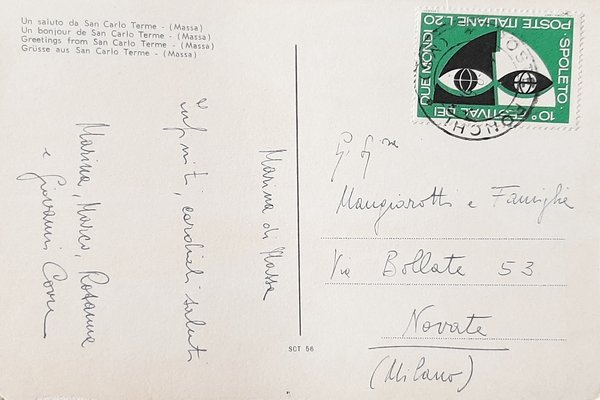 Un saluto da San Carlo Terme - (Massa)
Un bonjour de San Carlo Terme - (Massa)
Greetings from San Carlo Terme - (Massa)
Grüsse aus San Carlo Terme - (Massa)
Marina di Massa
Infiniti, cordiali saluti
Marina, Marco, Rosanna
e Giovanni
SCT 56
10° FESTIVAL DEI DUE MONDI
SPOLETO · POSTE ITALIANE L.20
RONCHI
Mangiarotti e Famiglia
Via Bollate 53
Novate
(Milano)